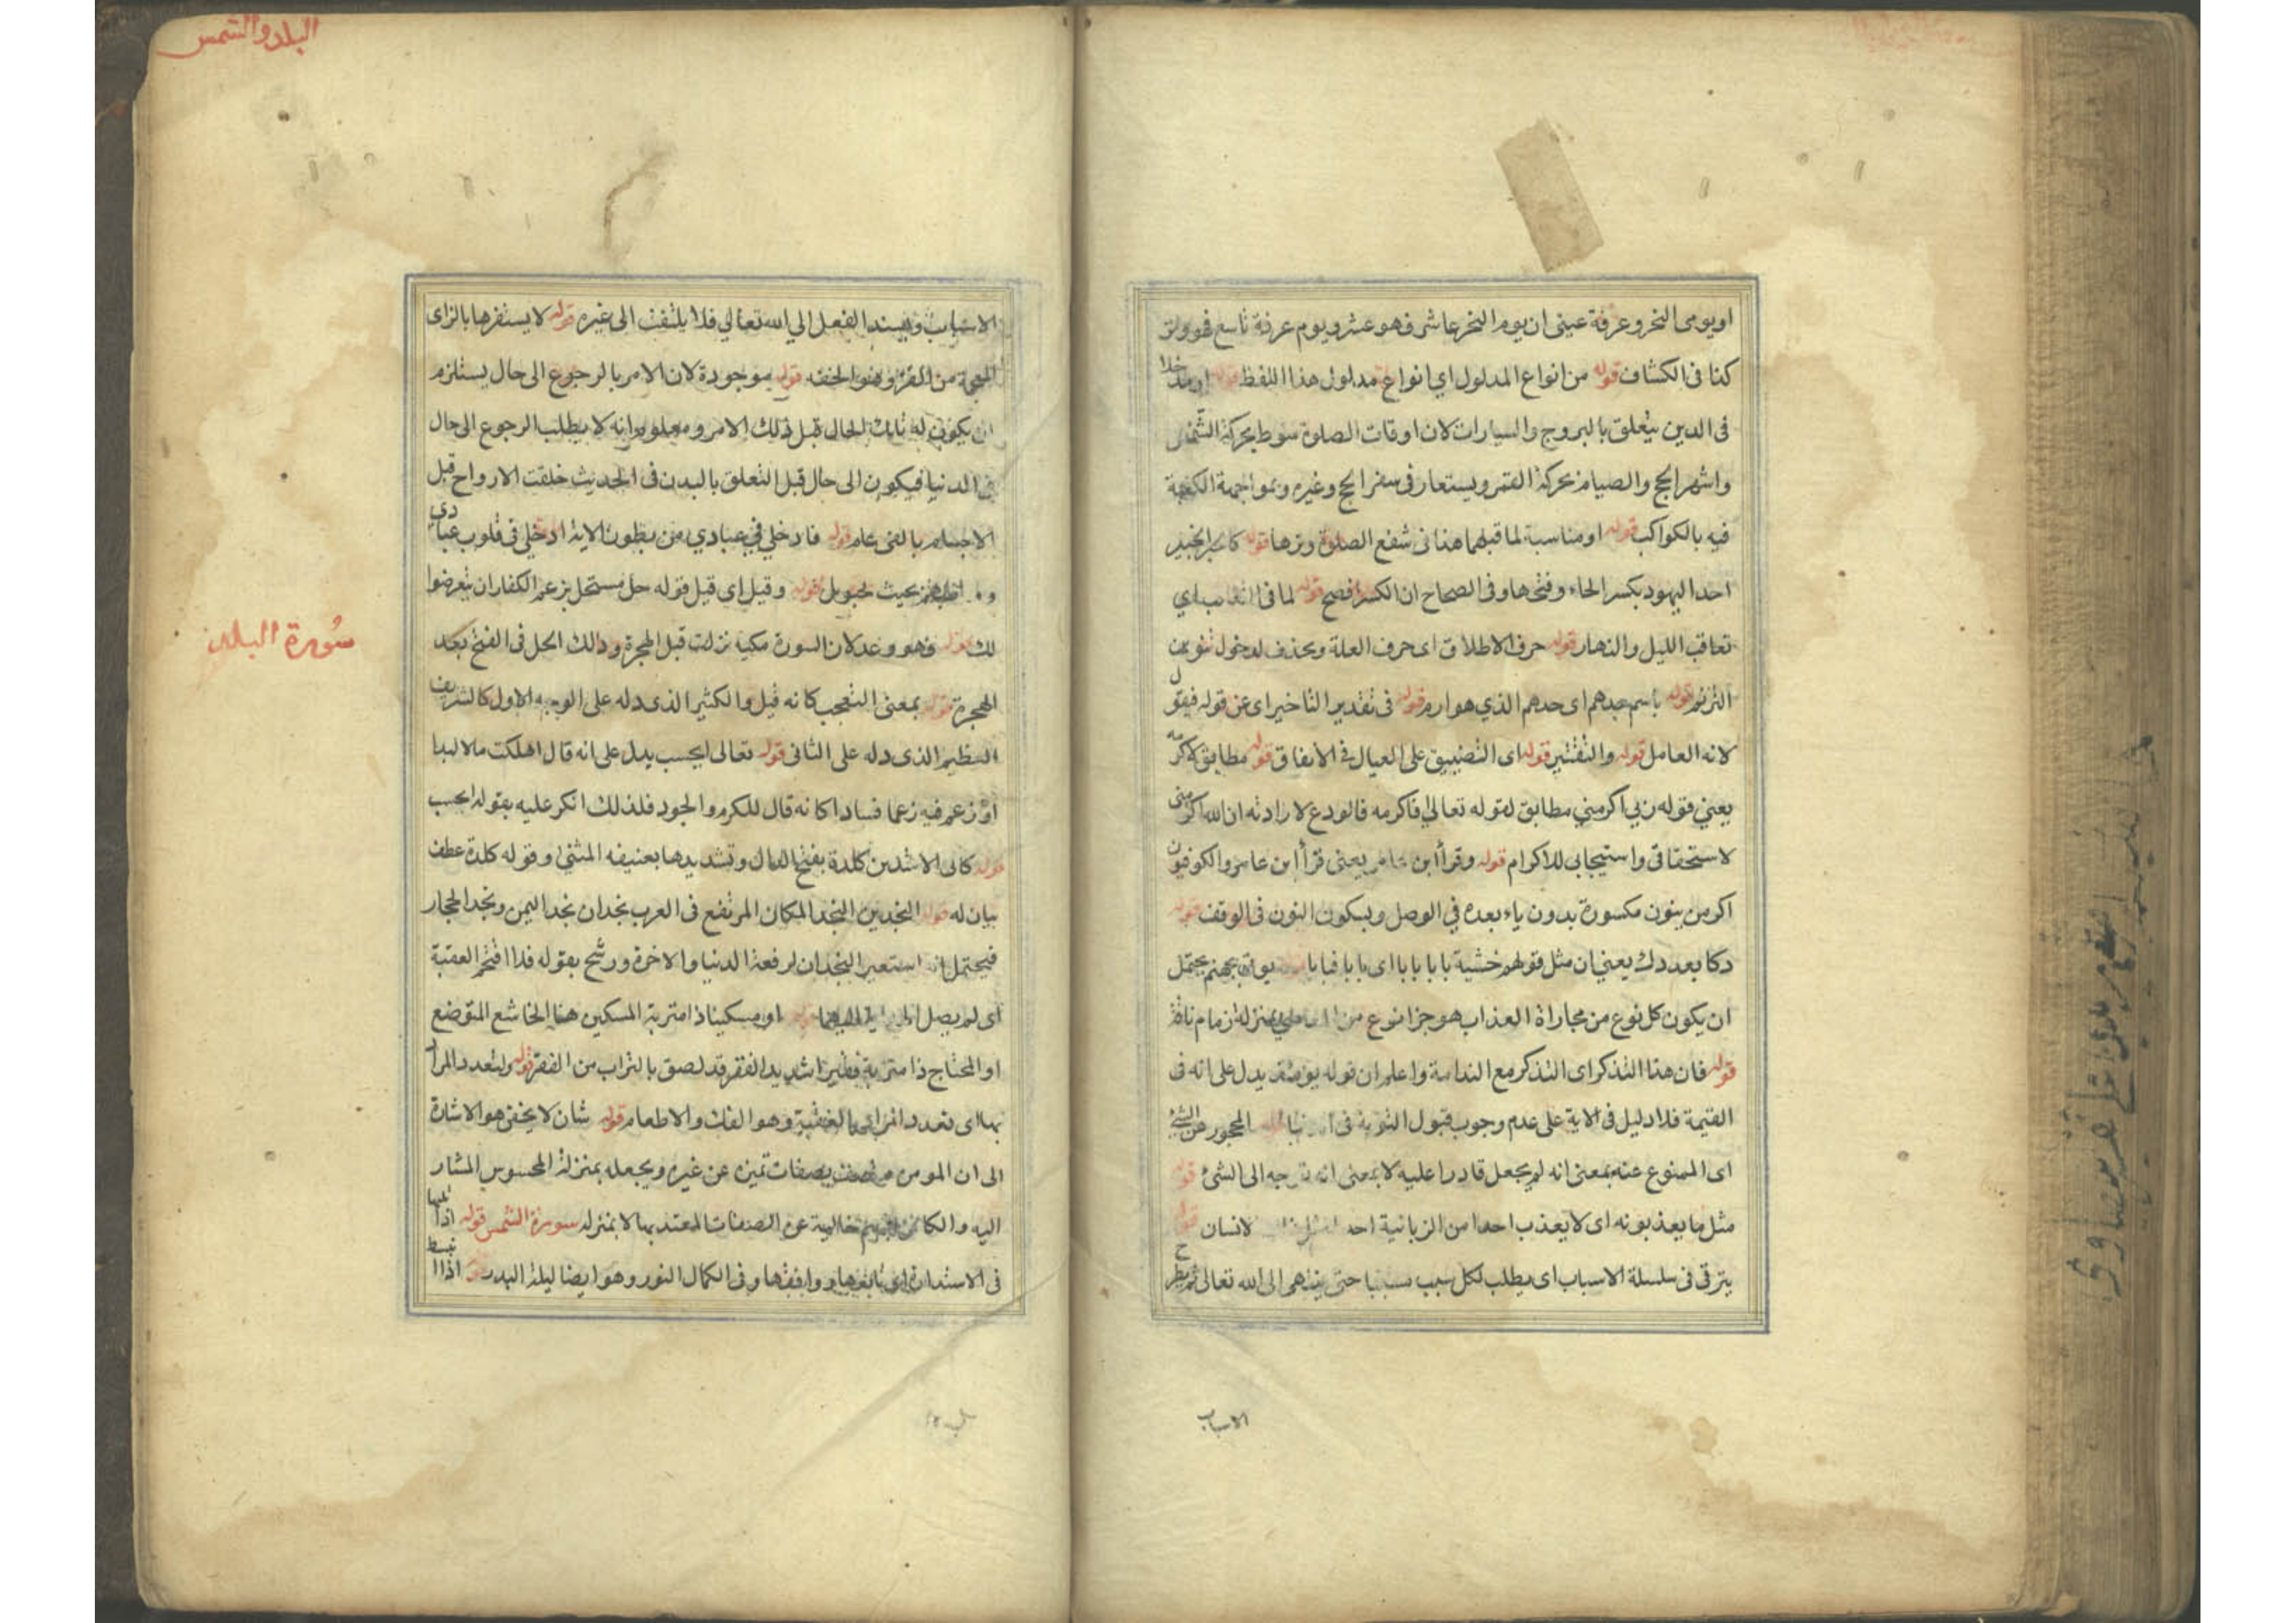 او يومى النحر وعرفة عينى ان يوم النحر عاشر فهو عشر ويوم عرفة تاسع فهو وتر
كذا فى الكشاف قوله من انواع المدلول اى انواع مدلول هذا اللفظ قوله او مدخلا
فى الدين يتعلق بالبروج والسيارات لان اوقات الصلوة منوط بحركة الشمس
واشهر الحج والصيام بحركة القمر ويستعار فى سفر الحج وغيره وبمواجهة الكعبة
فيه بالكواكب قوله او مناسبة لما قبلهما هذا فى شفع الصلوة وترها قوله كالحبر
احد اليهود بكسر الحاء وفتحها وفى الصحاح ان الكسر افصح قوله لما فى
تعاقب الليل والنهار قوله حرف الاطلاق اى حرف العلة ويحذف لدخول تنوين
الترنم قوله باسم جدهم اى جدهم الذي هو ارم قوله فى تقدير التاخير اى عن قوله فيقول
لانه العامل قوله والتقتير قوله اى التضييق على العيال فى الانفاق قوله مطابق لاكرمه
يعني قوله ربي اكرمني مطابق لقوله تعالى فاكرمه فالودع لارادته ان الله اكرمنى
لاستحقاقى واستيجابى للاكرام قوله وقرأ ابن عامر يعنى قرأ ابن عامر والكوفيون
اكرمن بنون مكسورة بدون ياء بعده في الوصل وبسكون النون فى الوقف قوله
دكا بعد دك يعني ان مثل قولهم بابا بابا اى بابا فبابا بجهنم يحتمل
ان يكون كل نوع من مجاراة العذاب هو جزا نوع من بمنزلة زمام ناقة
قوله فان هذا التذكر اى التذكر مع الندامة واعلم ان قوله يومئذ يدل على انه فى
القيمة فلا دليل فى الاية على عدم وجوب قبول التوبة فى قوله المحجور عن الشئ
اى الممنوع عنه بمعنى انه لم يجعل قادرا عليه لا بمعنى انه توجه الى الشئ قوله
مثل ما يعذبونه اى لا يعذب احدا من الزبانية احد الانسان قوله
يترقى فى سلسلة الاسباب اى يطلب لكل سبب سببا حتى ينتهى الى الله تعالى ثم
الاسباب
البلد والشمس
الاسباب ويسند الفعل الي الله تعالي فلا يلتفت الى غيره قوله لا يستفزها بالزاى
المعجمة من الفز وهو الخفة قوله موجودة لان الامر بالرجوع الى حال يستلزم
ان يكون له تلك الحال قبل ذلك الامر ومعلوم انه لا يطلب الرجوع الى حال
فى الدنيا فيكون الى حال قبل التعلق بالبدن فى الحديث خلقت الارواح قبل
الاجسام بالفى عام قوله فادخلي في عبادي من بطون الاية ادخلى فى قلوب عبادى
بحيث قوله وقيل اى قيل قوله حل مستحل بزعم الكفار ان يتعرضوا
لك قوله وهو وعد لان السورة مكية نزلت قبل الهجرة وذلك الحل فى الفتح بعد
الهجرة قوله بمعنى التعجب كانه قيل والكثير الذى دله على الوجه الاول كالشريف
العظيم الذى دله على الثانى قوله تعالى ايحسب يدل على انه قال اهلكت مالا لبدا
او زعم فيه زعما فسادا كانه قال للكرم والجود فلذلك انكر عليه بقوله ايحسب
قوله كابى الاشدين كلدة بفتح الدال وتشديدها بعنيفه المثنى وقوله كلدة عطف
بيان له قوله النجدين النجد المكان المرتفع فى العرب نجدان نجد اليمن ونجد الحجاز
فيحتمل انه استعير النجدان لرفعة الدنيا والاخرة ورشح بقوله فلا اقتحم العقبة
اى لم يصل قوله او مسكينا ذا متربة المسكين هنا الخاشع المتوضع
او المحتاج ذا متربة فقيرا شديد الفقر قد لصق بالتراب من الفقر قوله ولتعدد المراد
بها اى تعدد المراد بالعقبة وهو الفك والاطعام قوله شان لا يخفى هو الاشارة
الى ان المومن متصف بصفات تميزه عن غيره ويجعله بمنزلة المحسوس المشار
اليه والكافر خالية عن الصفات المعتد بها لا بمنزله سورة الشمس قوله اذا تليها
فى الاستدارة اى تابعها ووافقها وفى الكمال النور وهو ايضا ليلة البدر قوله اذا
سورة البلد